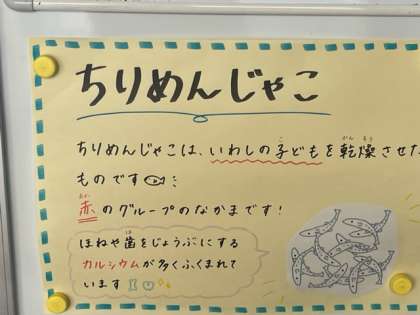 ちりめんじゃこ
ちりめんじゃこは、いわしの子どもを乾燥させた
ものです
赤のグループのなかまです!
ほねや歯をじょうぶにする
カルシウムが多くふくまれて
います